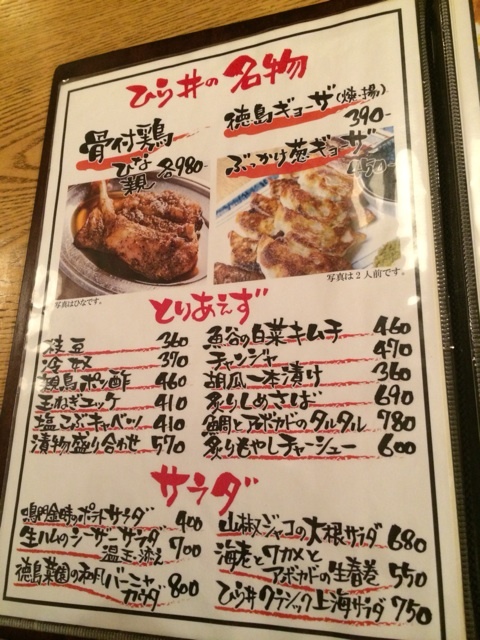 ひら井の名物
骨付鶏
ひな
親 各980-
徳島ギョーザ(焼・揚)
390-
ぶっかけ葱ギョーザ
450-
写真はひなです。
写真は2人前です。
とりあえず
枝豆 360
冷奴 370
親鳥ポン酢 460
玉ねぎユッケ 410
塩こぶキャベツ 410
漬物盛り合わせ 570
魚谷の白菜キムチ 460
チャンジャ 470
胡瓜一本漬け 360
炙りしめさば 690
鯛とアボカドのタルタル 780
炙りもやしチャーシュー 600
サラダ
鳴門金時のポテトサラダ 400
生ハムのシーザーサラダ
温玉添え 700
徳島菜園の和風バーニャ
カウダ 800
山椒ジャコの大根サラダ 680
海老とワカメと
アボカドの生春巻 550
ひら井クラシック上海サラダ 750